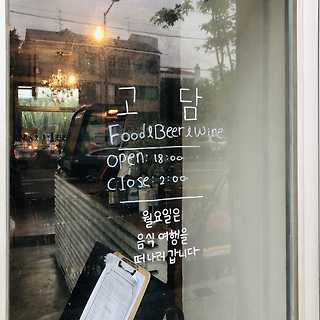 고 담
Food&Beer&Wine
open: 18:00
close: 2:00
월요일은
음식 여행을
떠나러 갑니다